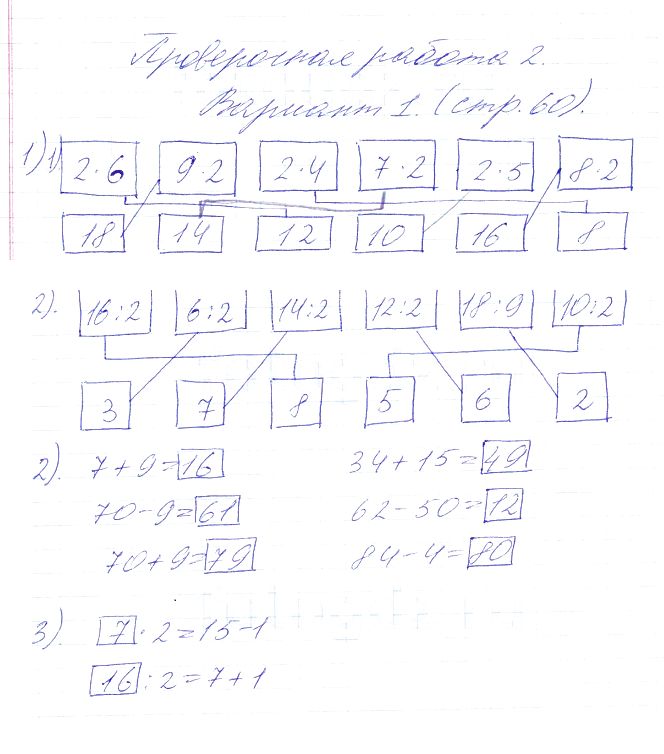 Проверочная работа 2.
Вариант 1. (стр. 60).
1) 1) 2·6 9·2 2·4 7·2 2·5 8·2
18 14 12 10 16 8
2). 16:2 6:2 14:2 12:2 18:9 10:2
3 7 8 5 6 2
2). 7+9=16 34+15=49
70-9=61 62-50=12
70+9=79 84-4=80
3). 7·2=15-1
16:2=7+1